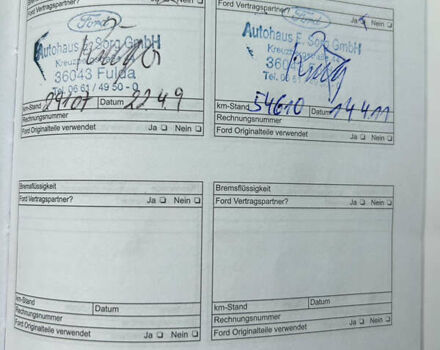 Ford Vertragspartner?
Ford
Autohaus E. Sorg GmbH
Kreuzbergstraße
36043 Fulda
Tel. 06 61 / 49 50 - 0
km-Stand 29107 Datum 22 4 9
Rechnungsnummer
Ford Originalteile verwendet Ja ❑ Nein ❑
Ford Vertragspartner? Ja ❑ Nein ❑
Ford
Autohaus E. Sorg GmbH
Kreuzbergstraße 44
36043
Tel. 06 61
km-Stand 54610 Datum 14 4 11
Rechnungsnummer
Ford Originalteile verwendet Ja ❑ Nein ❑
Bremsflüssigkeit
Ford Vertragspartner? Ja ❑ Nein ❑
km-Stand Datum
Rechnungsnummer
Ford Originalteile verwendet Ja ❑ Nein ❑
Bremsflüssigkeit
Ford Vertragspartner? Ja ❑ Nein ❑
km-Stand Datum
Rechnungsnummer
Ford Originalteile verwendet Ja ❑ Nein ❑